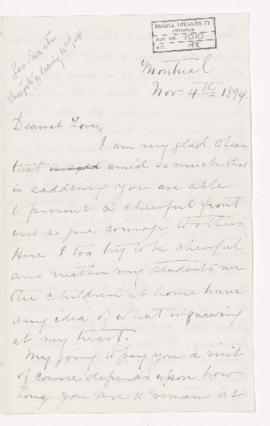 McGILL UNIVERSITY
ARCHIVES
ACC. NO. 1070
REF. 188
Montreal
Nov 4th 1894.
Dearest Love,
I am very glad to hear
that is sad amid so much that
is saddening you are able
to present a cheerful front
and so give courage to others
Here I too try to be cheerful
and neither my students nor
the children at home have
any idea of what is gnawing
at my heart.
My going to pay you a visit
of course depends upon how
long you are to remain at